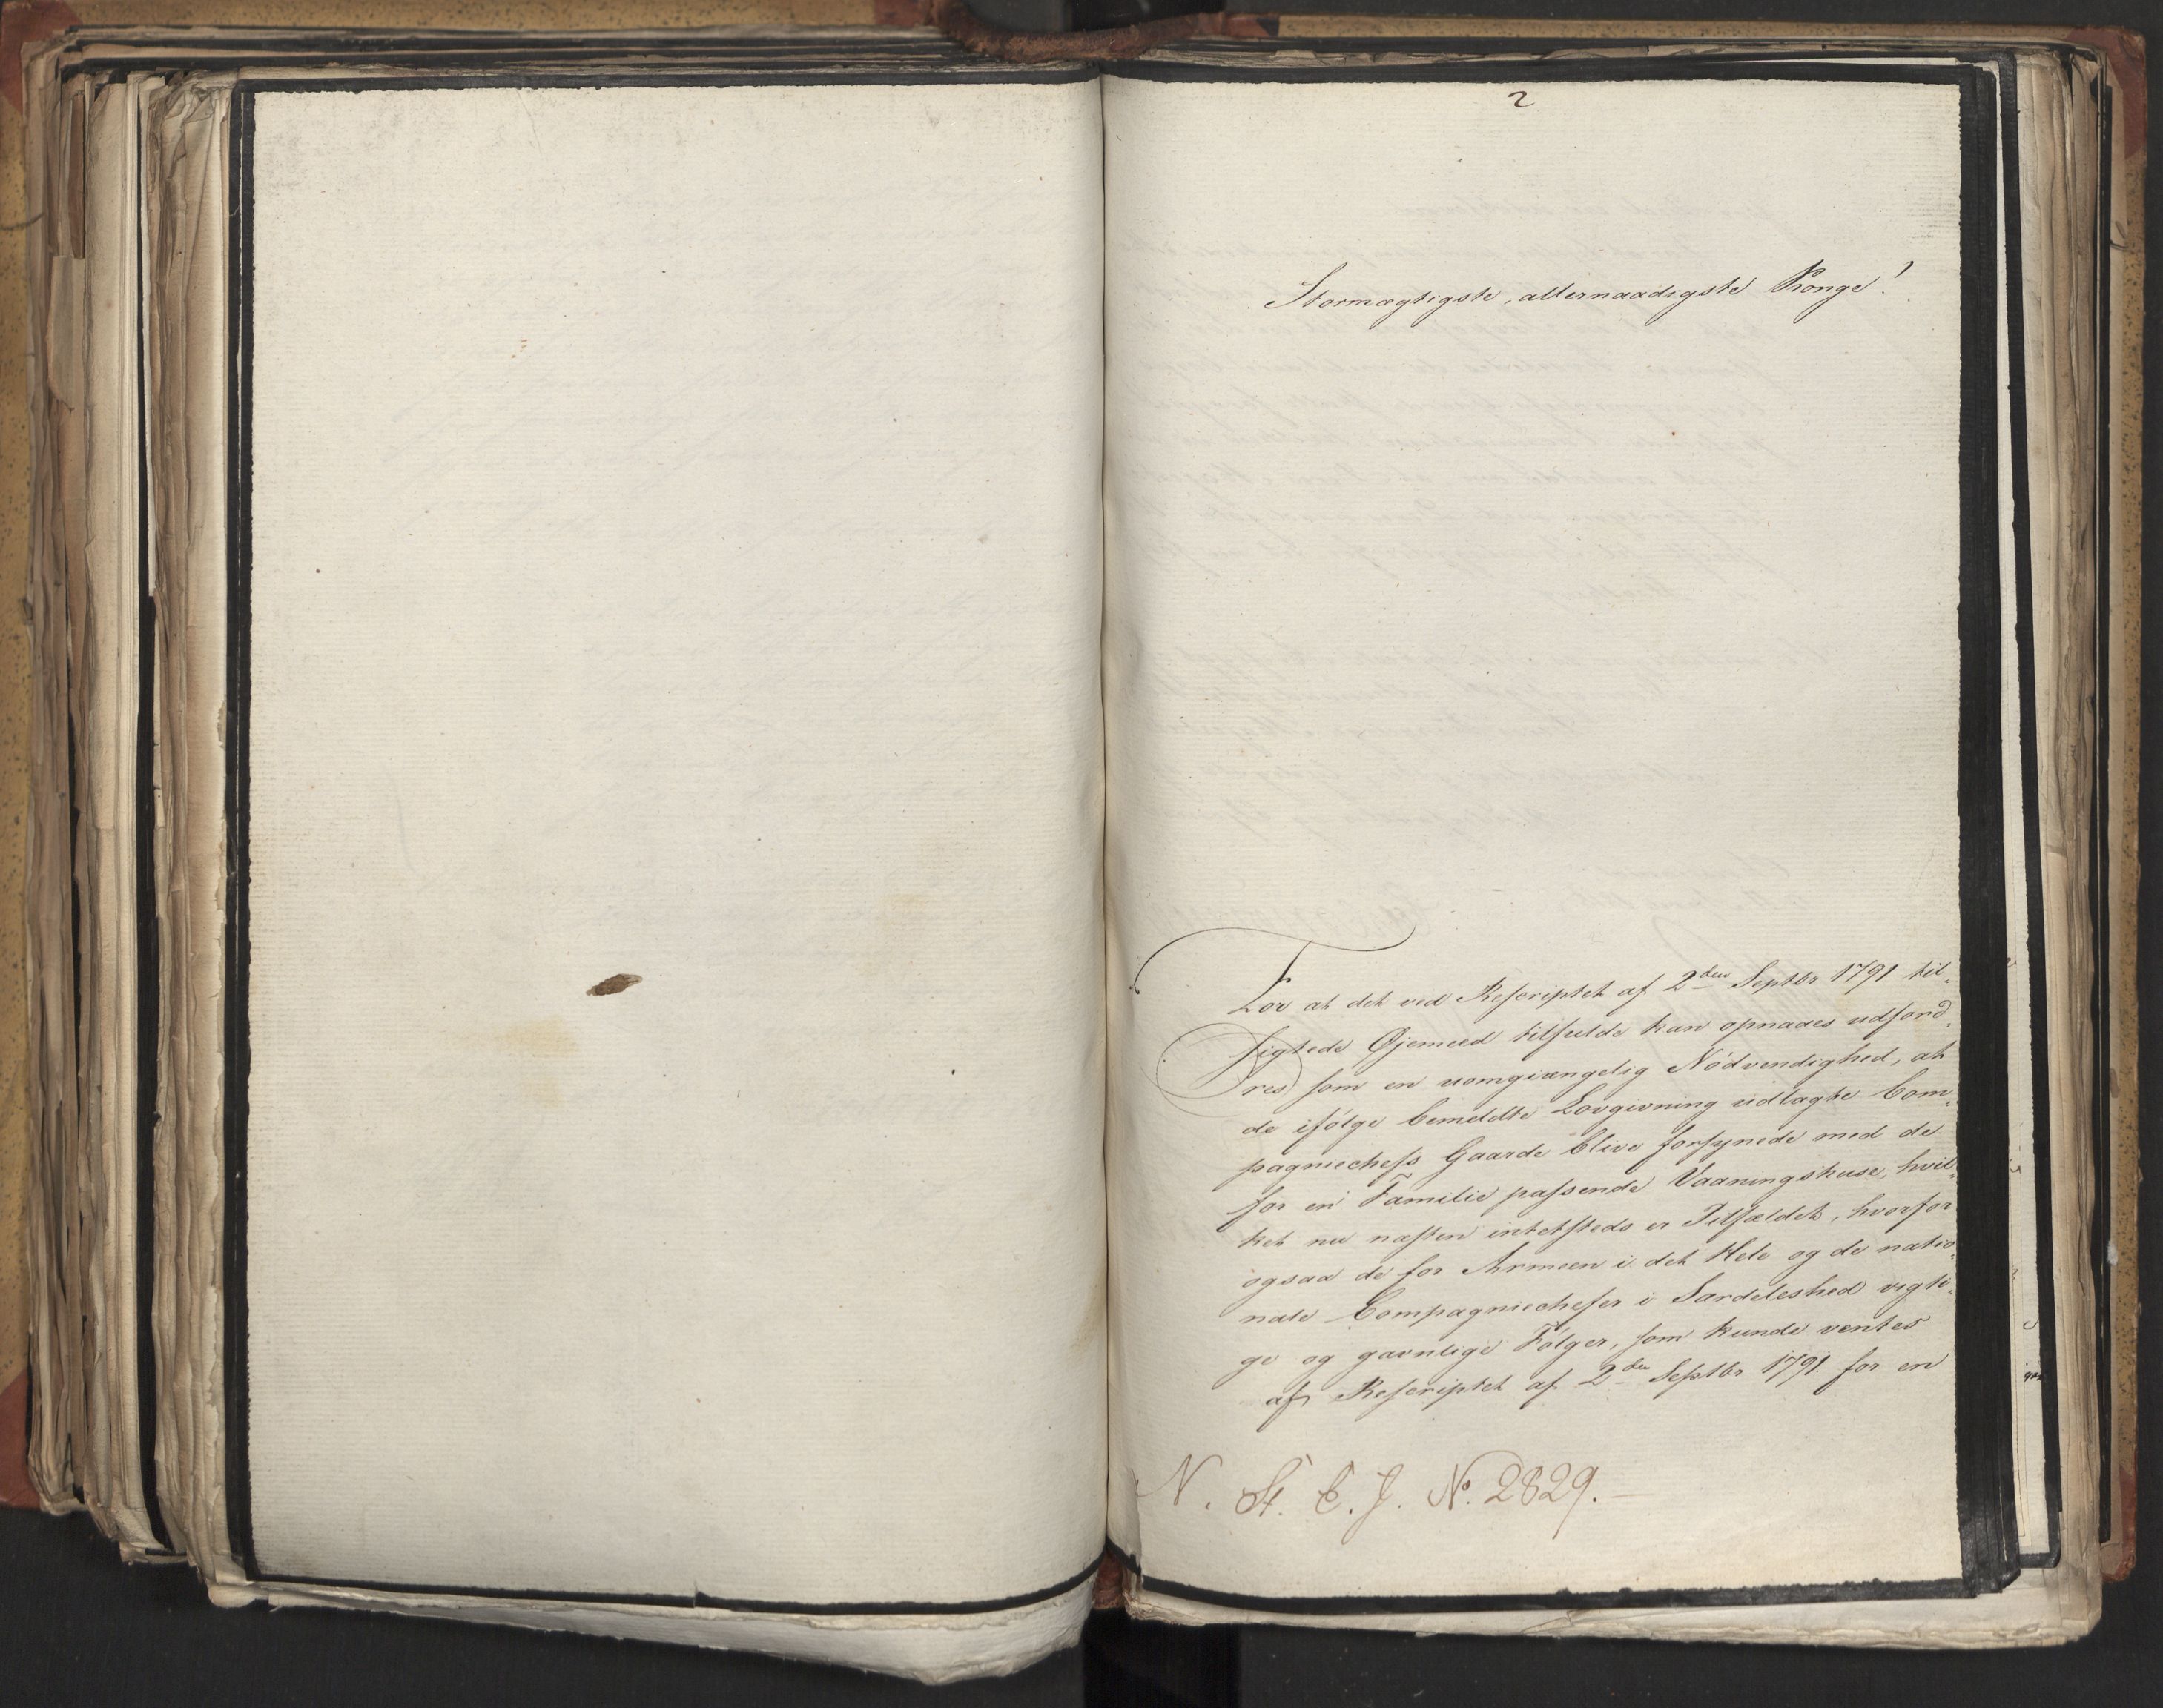 2
Stormægtigste, allernaadigste Konge!
For at det ved Rescriptet af 2den Septbr 1791 til-
sigtede Øjemeed tilfulde kan opnaaes udford-
res som en uomgiængelig Nödvendighed, at
de ifölge bemeldte Lovgivning udlagte Com-
pagniechefs Gaarde blive forsynede med de
for en Familie passende Vaaningshuse, hvil-
ket nu næsten intetsteds er Tilfældet, hvorfor
ogsaa de for Armeen i det Hele og de natio-
nale Compagniechefer i Særdeleshed vigti-
ge og gavnlige Fölger, som kunde ventes
af Rescriptet af 2den Septbr 1791 for en
N. St. C. J. No. 2829.